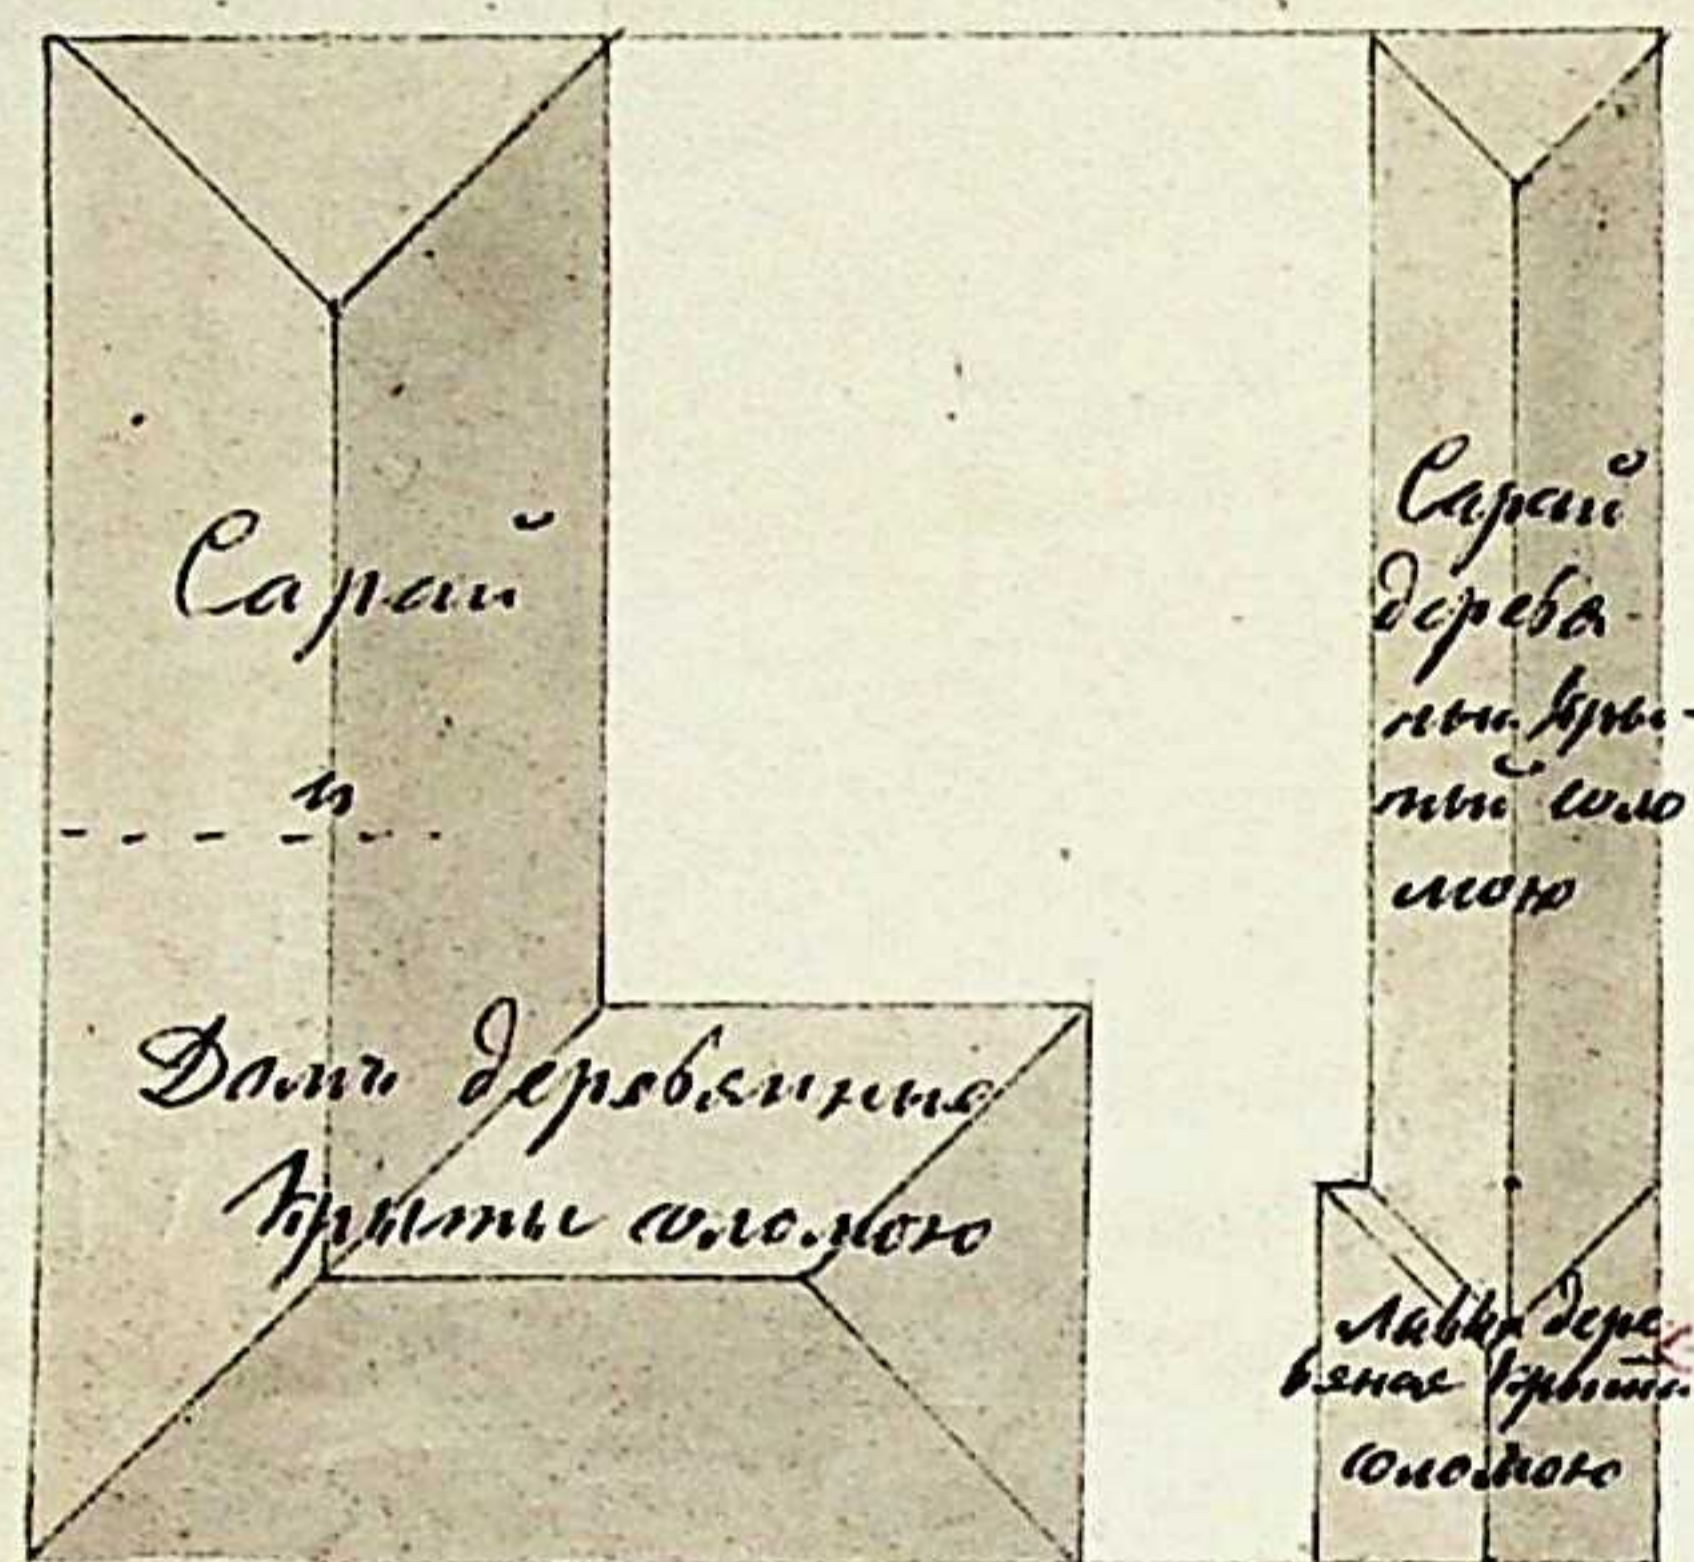 Сарай
и
Домъ деревянные
крыты соломою
Сарай
деревя
ный кры-
тый соло
мою
лавка дере
вяная крыта
соломою